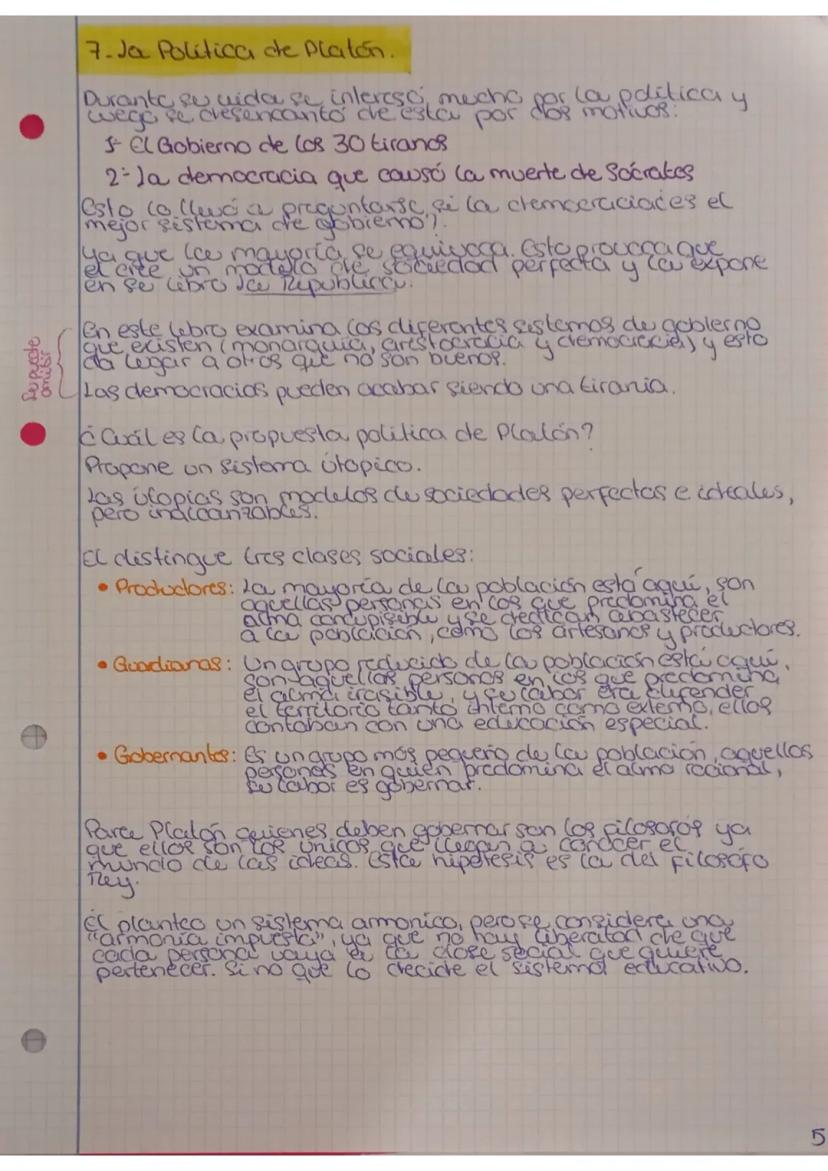 7- La Política de Platón.
Durante su vida se interesó mucho por la política y
luego se desencantó de esta por dos motivos:
1- El Gobierno de los 30 tiranos
2- La democracia que causó la muerte de Sócrates
Esto lo llevó a preguntarse si la democracia es el
mejor sistema de gobierno?.
Ya que la mayoría se equivoca. Esto provoca que
el cree un modelo de sociedad perfecta y la expone
en su libro La República.
Se puede
omitir
En este libro examina los diferentes sistemas de gobierno
que existen (monarquía, aristocracia y democracia) y esto
da lugar a otros que no son buenos.
Las democracias pueden acabar siendo una tirania.
¿Cuál es la propuesta política de Platón?
Propone un sistema útopico.
Las útopias son modelos de sociedades perfectas e ideales,
pero inalcanzables.
El distingue tres clases sociales:
• Productores: La mayoría de la población está aquí, son
aquellas personas en los que predomina el
alma concupisible y se dedican abastecer
a la población, como los artesanos y productores.
• Guardianas: Un grupo reducido de la población está aquí,
son aquellas personas en los que predomina
el alma irasible, y su labor era defender
el territorio tanto interno como externo, ellos
contaban con una educación especial.
• Gobernantes: Es un grupo más pequeño de la población, aquellos
personas en quien predomina el alma racional,
su labor es gobernar.
Para Platón quienes deben gobernar son los filosofos ya
que ellos son los únicos que llegan a conocer el
mundo de las ideas. Esta hipótesis es la del Filosofo
Rey.
El planteo un sistema armonico, pero se considera una
"armonía impuesta", ya que no hay liberatad de que
cada persona vaya a la clase social que quiere
pertenecer. Si no que lo decide el sistema educativo.
5